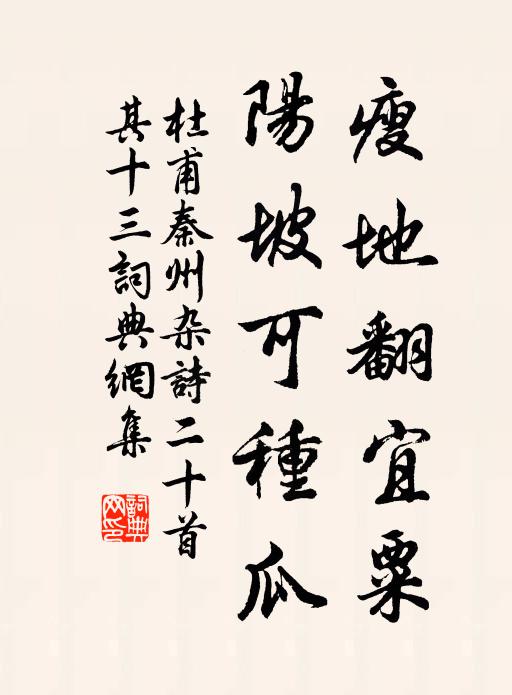 瘦地翻宜粟
陽坡可種瓜
杜甫秦州杂詩二十首
其十三詞典網集
詞典
网印